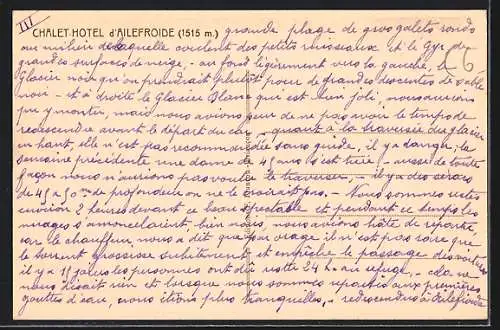 III
CHALET-HOTEL d'AILEFROIDE (1515 m.) grande plage de gros galets ronds
au milieu de laquelle coulent des petits ruisseaux et le Gyr de
grandes surfaces de neige, - au fond légèrement vers la gauche, le
Glacier noir qu'on prendrait plutôt pour de grandes descentes de sable
noir - et à droite le Glacier Blanc qui est bien joli, nous aurions
pu y monter, mais nous avions peur de ne pas avoir le temps de
redescendre avant le départ du car - quant à la traversée du glacier
en haut, elle n'est pas recommandée sans guide, il y a danger; la
semaine précédente une dame de 45 ans s'est tuée - aussi de toute
façon nous n'aurions pas voulu le traverser, - il y a des séracs
de 45 à 50 m de profondeur on ne le dirait pas. - Nous sommes restés
environ 2 heures devant ce beau spectacle et pendant ce temps les
nuages s'amoncelaient, bien nous, nous avions hâte de repartir
car le chauffeur, nous a dit que par orage il n'est pas rare que
le torrent grossisse subitement et empêche le passage des voitures
il y a 15 jours les personnes ont dû rester 24 h. au refuge, - cela ne
nous disait rien et lorsque nous sommes repartis aux premières
gouttes d'eau, nous étions plus tranquilles, - redescendus à Ailefroide